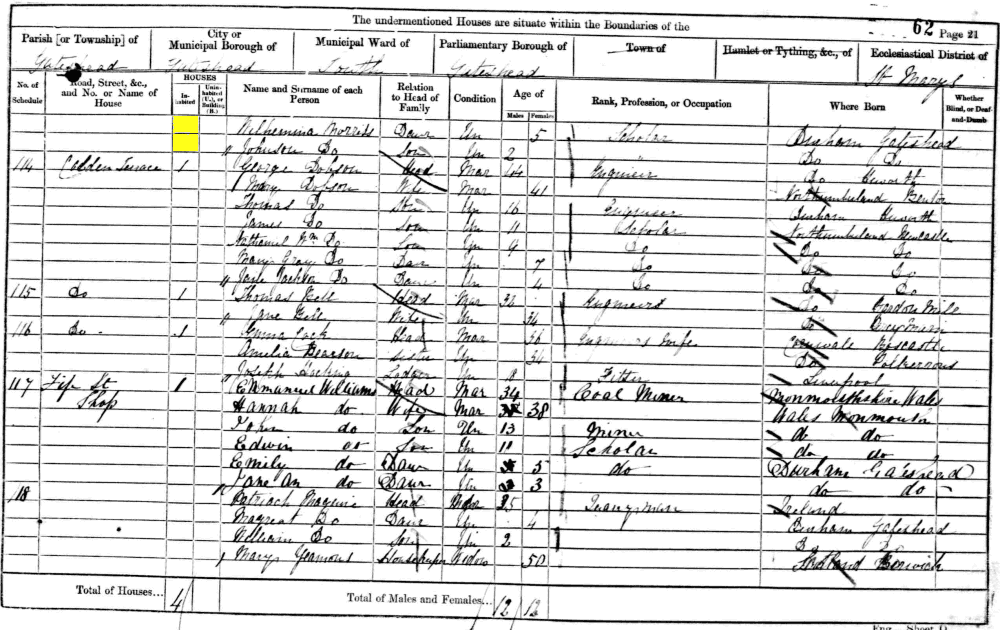 The undermentioned Houses are situate within the Boundaries of the
62 Page 21
Parish [or Township] of
Gateshead
City or Municipal Borough of
Gateshead
Municipal Ward of
South
Parliamentary Borough of
Gateshead
Town of
Hamlet or Tything, &c., of
Ecclesiastical District of
St Marys
No. of Schedule
Road, Street, &c., and No. or Name of House
HOUSES
Inhabited
Uninhabited (U.), or Building (B.)
Name and Surname of each Person
Relation to Head of Family
Condition
Age of
Males
Females
Rank, Profession, or Occupation
Where Born
Whether Blind, or Deaf-and-Dumb
Daur Un 5 Scholar Durham Gateshead
Johnson Do Son Un 2 Do Do
114 Terrace 1 George Dobson Head Mar Engineer Do Heworth
Mary Dobson Wife Mar 41 Northumberland Benton
Thomas Do Son Un 16 Engineer Durham Heworth
James Do Son Un 11 Scholar Northumberland Newcastle
Nathaniel Wm Do Son Un 9 Do Do Do
Mary Gray Do Daur Un 7 Do Do Do
Jane Jackson Do Daur Un 4 Do Do Do
115 Do 1 Thomas Head Mar Do
Jane Wife 34 Do
116 Do 1 Emma Head Mar 36 Engineers Wife
Amelia Pearson Sister Un 34 Do
Joseph Lodger Un Fitter Liverpool
117 St Shop 1 Emmanuel Williams Head Mar 34 Coal Miner Monmouthshire Wales
Hannah do Wife Mar 38 Wales Monmouth
John do Son Un 13 Miner do do
Edwin do Son Un 11 Scholar do do
Emily do Daur Un 5 do Durham Gateshead
Jane An do Daur Un 3 do do
118 Head 35 Ireland
Do Daur Un 4 Durham Gateshead
William Do Son Un 2
Mary Housekeeper Widow 50 Scotland Berwick
Total of Houses... 4
Total of Males and Females... 12 12
Eng.—Sheet D.